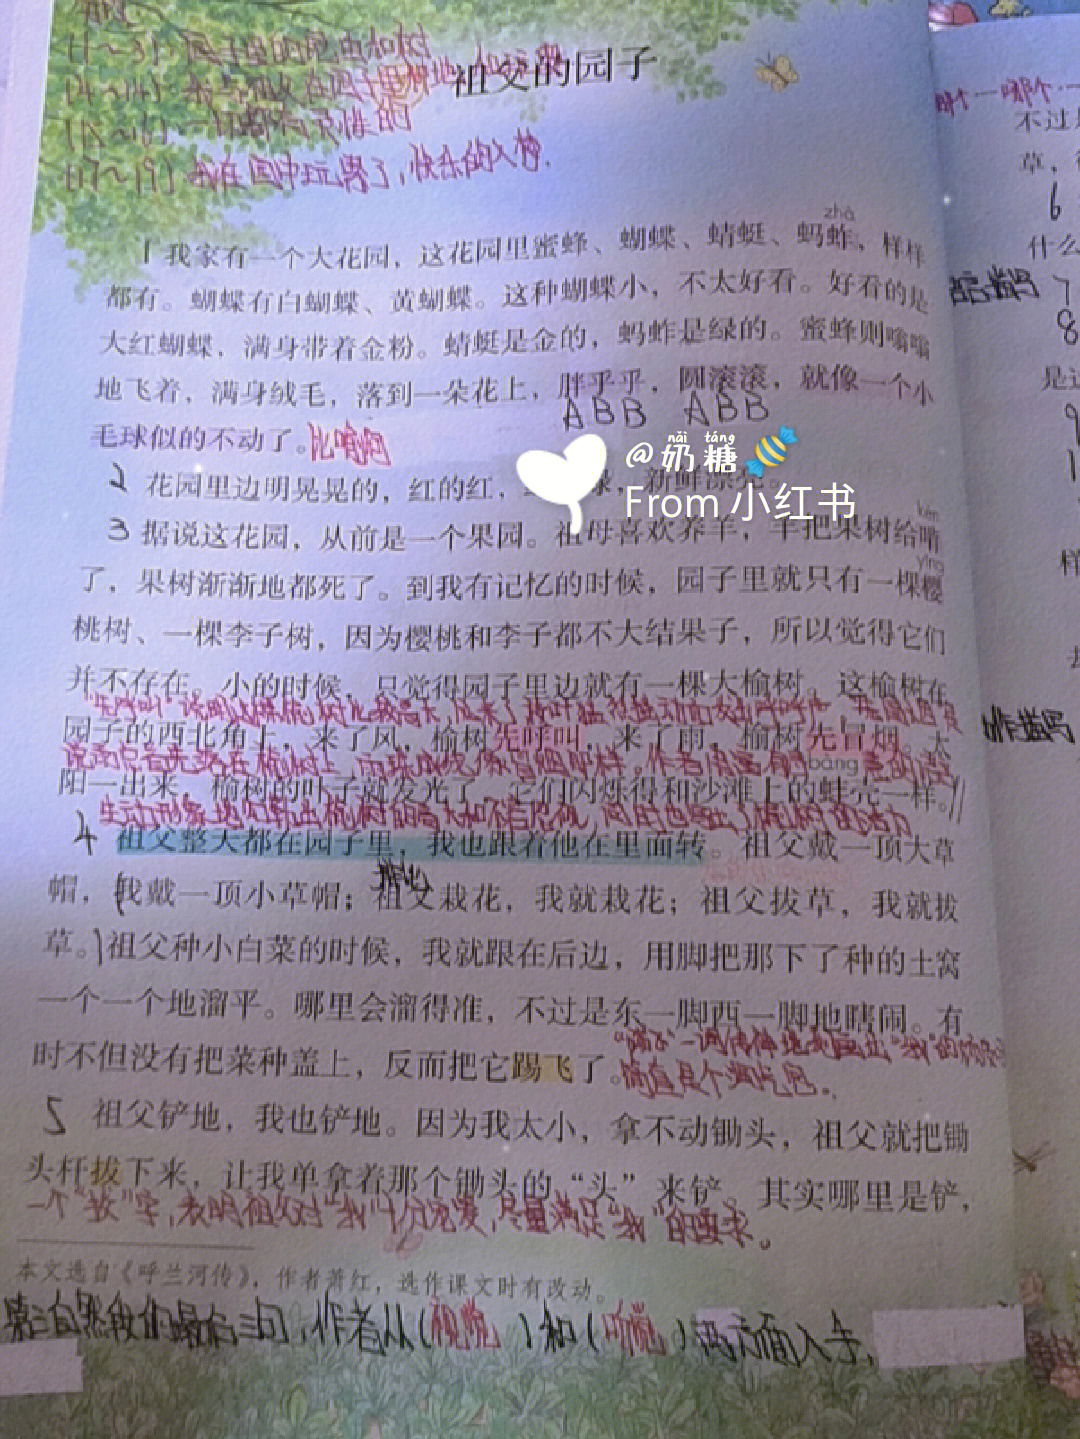 (1~3) 园子里的昆虫和树
祖父的园子
(17~19) 我在园中玩累了，快乐的入梦.
zhà
1 我家有一个大花园，这花园里蜜蜂、蝴蝶、蜻蜓、蚂蚱，样样
都有。蝴蝶有白蝴蝶、黄蝴蝶。这种蝴蝶小，不太好看。好看的是
大红蝴蝶，满身带着金粉。蜻蜓是金的，蚂蚱是绿的。蜜蜂则嗡嗡
地飞着，满身绒毛，落到一朵花上，胖乎乎，圆滚滚，就像一个小
ABB ABB
毛球似的不动了。比喻句
nǎi táng
@奶糖
2 花园里边明晃晃的，红的红，绿，新鲜漂亮。
From 小红书
kěn
3 据说这花园，从前是一个果园。祖母喜欢养羊，羊把果树给啃
yīng
了，果树渐渐地都死了。到我有记忆的时候，园子里就只有一棵樱
桃树、一棵李子树，因为樱桃和李子都不大结果子，所以觉得它们
并不存在。小的时候，只觉得园子里边就有一棵大榆树。这榆树在
园子的西北角上，来了风，榆树先呼叫，来了雨，榆树先冒烟。太
bàng
阳一出来，榆树的叶子就发光了，它们闪烁得和沙滩上的蚌壳一样。
4 祖父整天都在园子里，我也跟着他在里面转。祖父戴一顶大草
帽，我戴一顶小草帽；祖父栽花，我就栽花；祖父拔草，我就拔
草。祖父种小白菜的时候，我就跟在后边，用脚把那下了种的土窝
一个一个地溜平。哪里会溜得准，不过是东一脚西一脚地瞎闹。有
时不但没有把菜种盖上，反而把它踢飞了。
简直是个淘气包。
5 祖父铲地，我也铲地。因为我太小，拿不动锄头，祖父就把锄
头杆拔下来，让我单拿着那个锄头的“头”来铲。其实哪里是铲，
一个“拔”字，表明祖父对“我”十分宠爱，尽量满足“我”的要求。
本文选自《呼兰河传》，作者萧红，选作课文时有改动。
第三自然段的最后三句，作者从（视觉）和（听觉）两方面入手，
不过
草，
6
什么
7
8
是这
9
样
去